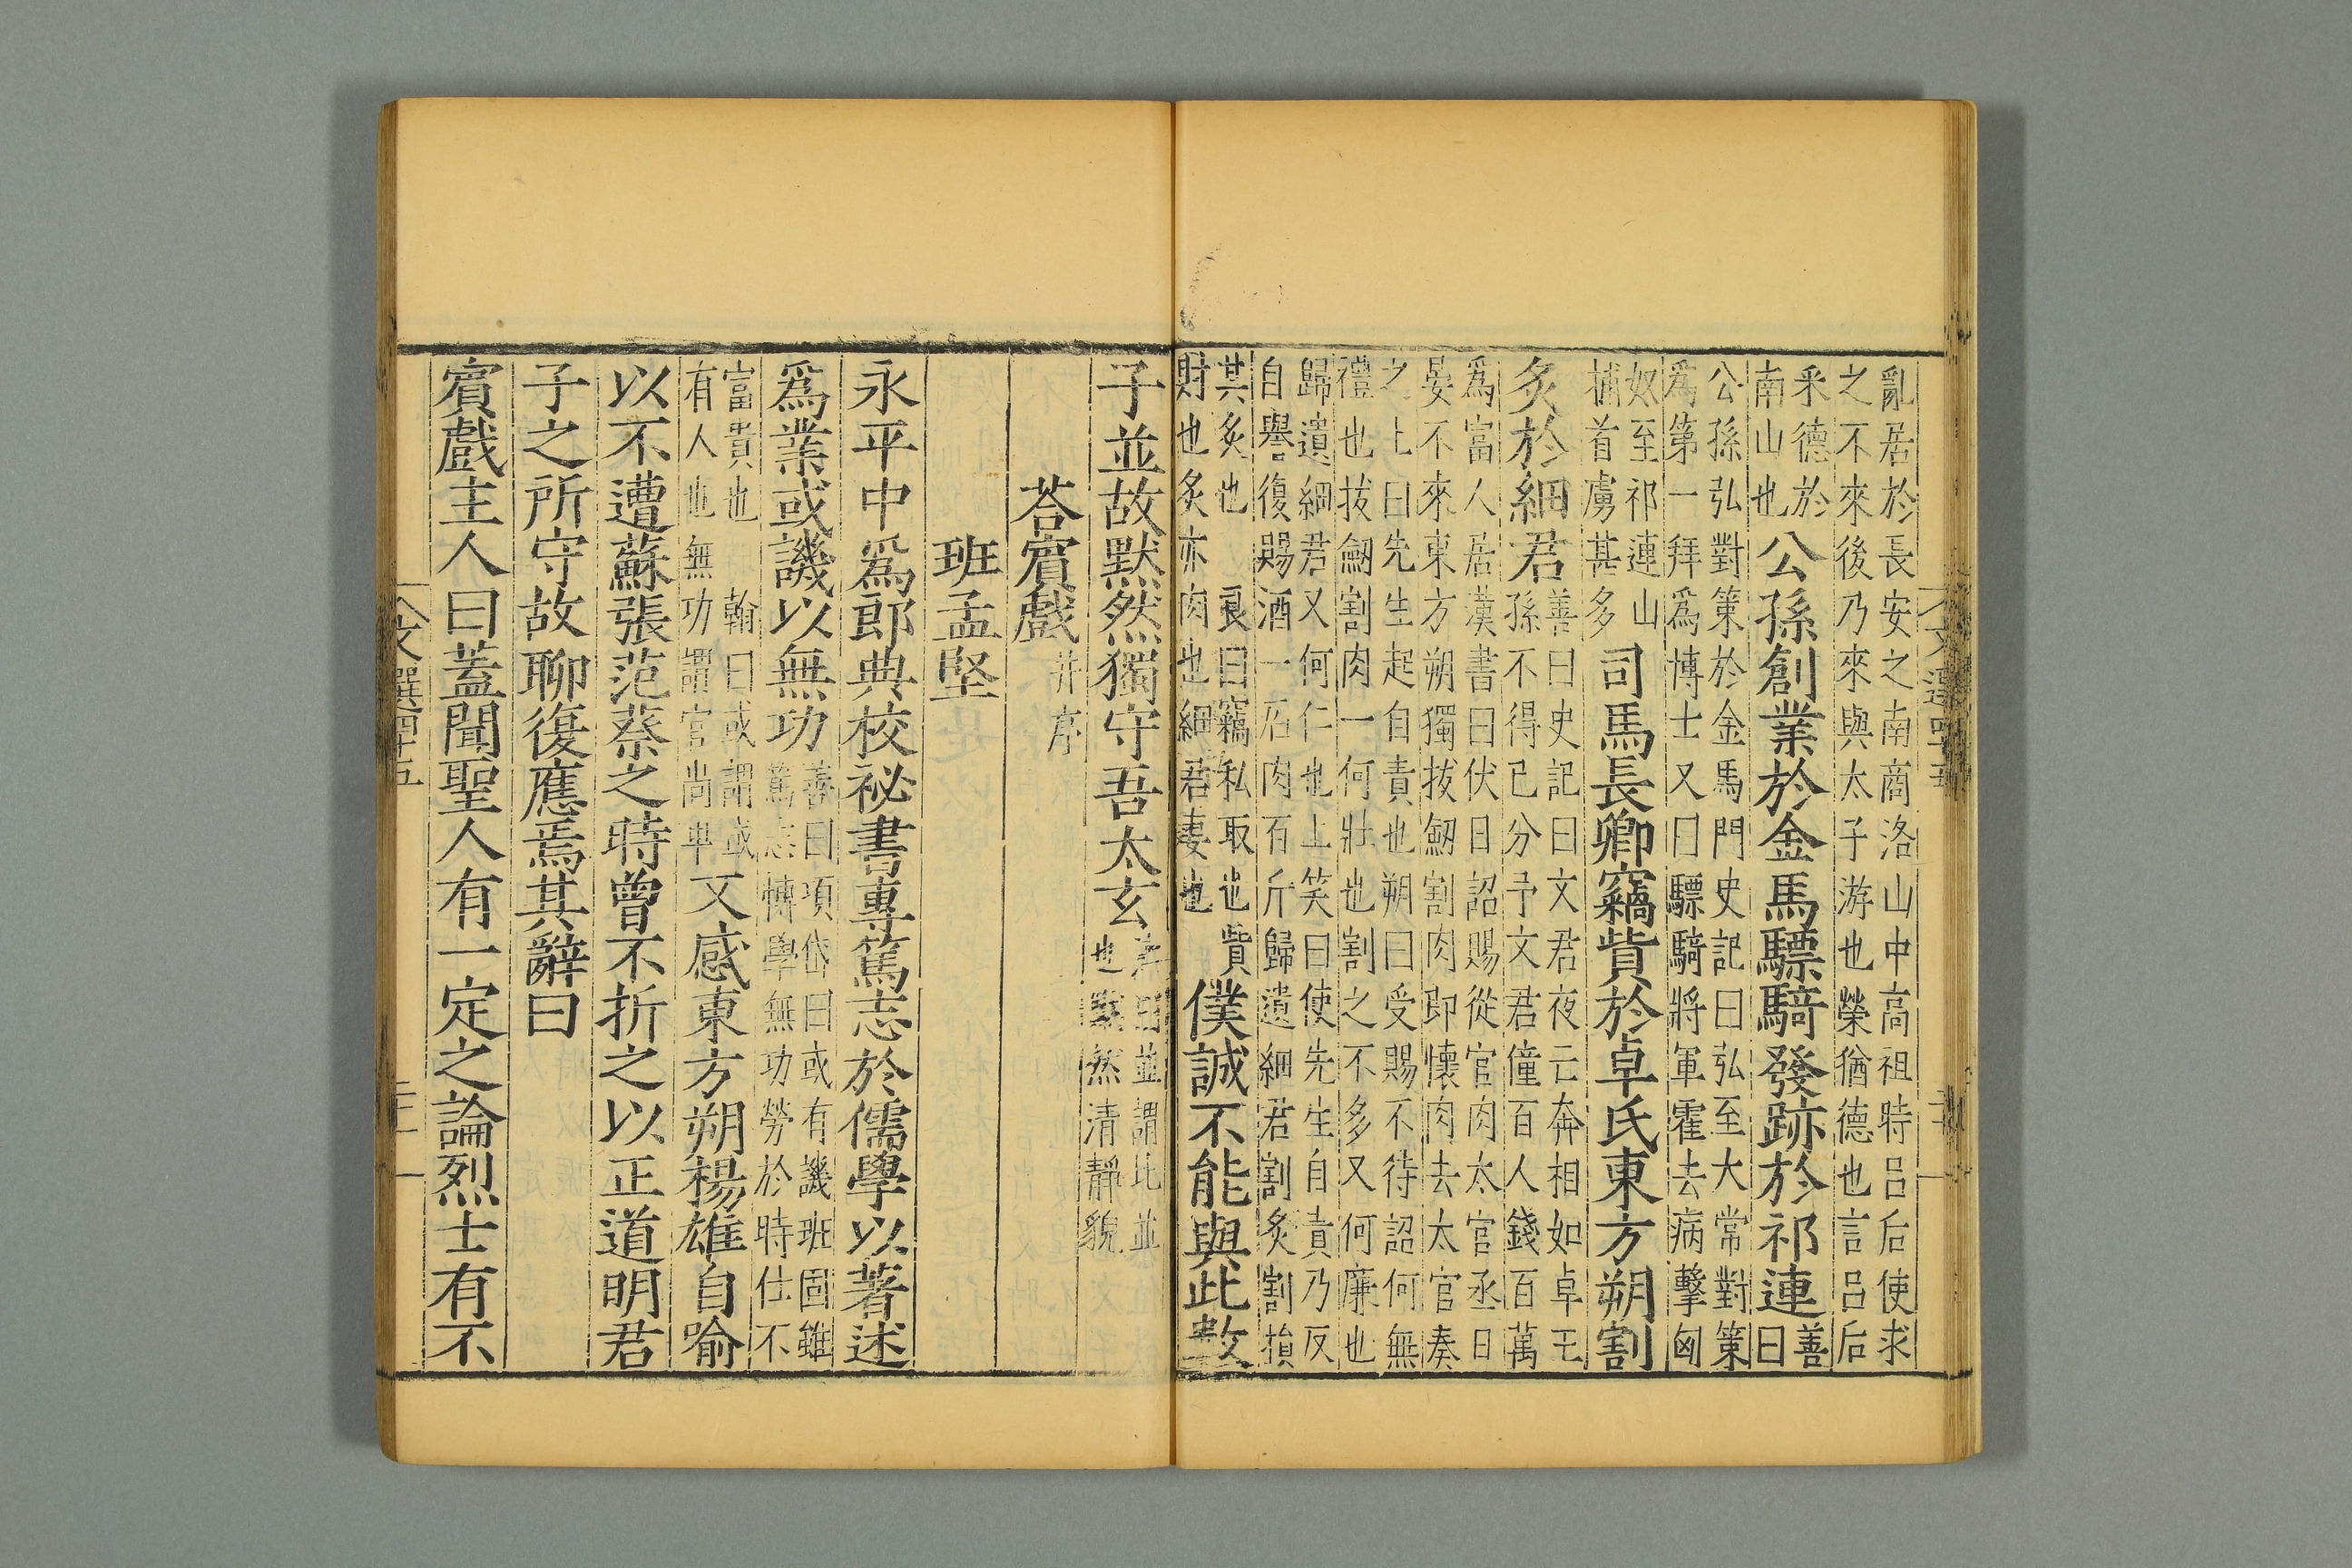 亂居於長安之南商洛山中高祖時呂后使求
之不來後乃來與太子游也榮猶德也言呂后
釆德於
南山也
公孫創業於金馬驃騎發跡於祁連
善
曰
公孫弘對策於金馬門史記曰弘至大常對策
爲第一拜爲博士又曰驃騎將軍霍去病擊匈
奴至祁連山
捕首虜甚多
司馬長卿竊貲於卓氏東方朔割
炙於細君
善曰史記曰文君夜亡奔相如卓王
孫不得已分予文君僮百人錢百萬
爲富人居漢書曰伏日詔賜從官肉太官丞日
晏不來東方朔獨拔劒割肉即懷肉去太官奏
之上曰先生起自責也朔曰受賜不待詔何無
禮也拔劒割肉一何壯也割之不多又何廉也
歸遺細君又何仁也上笑曰使先生自責乃反
自譽復賜酒一石肉百斤歸遺細君割炙割損
其炙也 良曰竊私取也貲
財也炙亦肉也細君妻也
僕誠不能與此數
子並故默然獨守吾太玄
並謂比並
也默然清靜貌
荅賓戲
并序
班孟堅
永平中爲郎典校祕書專篤志於儒學以著述
爲業或譏以無功
善曰項岱曰或有譏班固雖
篤志博學無功勞於時仕不
富貴也 翰曰或謂或
有人也無功謂官尚卑
又感東方朔楊雄自喻
以不遭蘇張范蔡之時曾不折之以正道明君
子之所守故聊復應焉其辭曰
賓戲主人曰蓋聞聖人有一定之論烈士有不
文選四十五